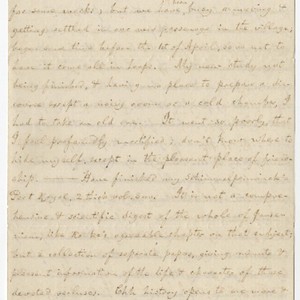 for some weeks, but we have been busy in moving &
getting settled in our new parsonage in the village,
began in time before the 1st of April, so as not to
have it come all in heaps. My new study not
being finished, & having no place to prepare a dis-
course except a noisy room or a cold chamber, I
had to take an old one. It went so poorly, that
I feel profoundly mortified, & don't know where to
hide myself, except in the pleasant place of friend-
ship. Have finished my
Port Royal, a thick volume. It is not a compre-
hensive & scientific digest of the whole of Jansen-
ism, like
chapter on that subject;
but a collection of separate papers, giving minute &
pleasant information of the life & characters of those
devoted recluses. Chh history opens to me more &